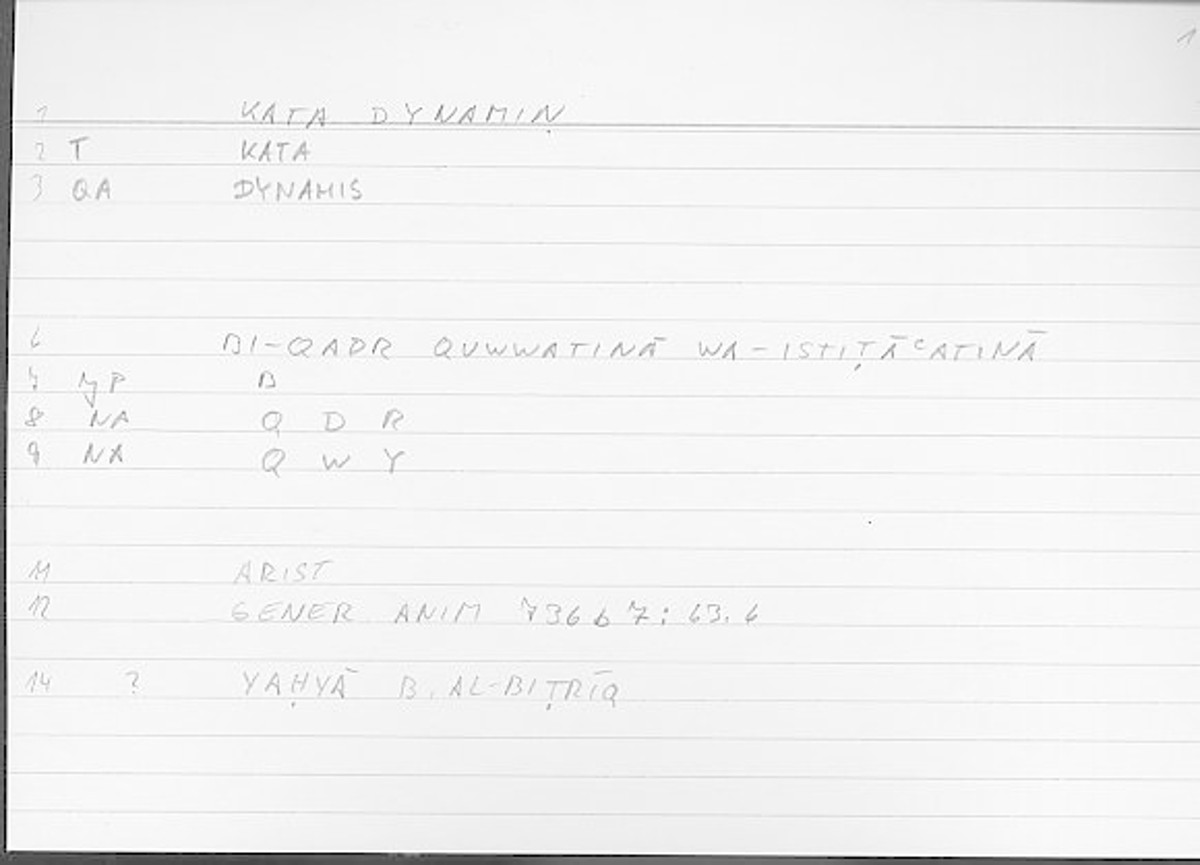 1
1 KATA DYNAMIN
2 T KATA
3 QA DYNAMIS
6 BI-QADR QUWWATINĀ WA-ISTIṬĀᶜATINĀ
7 P B
8 NA Q D R
9 NA Q W Y
11 ARIST
12 GENER ANIM 736 b 7: 63.6
14 ? YAḤYĀ B. AL-BIṬRĪQ